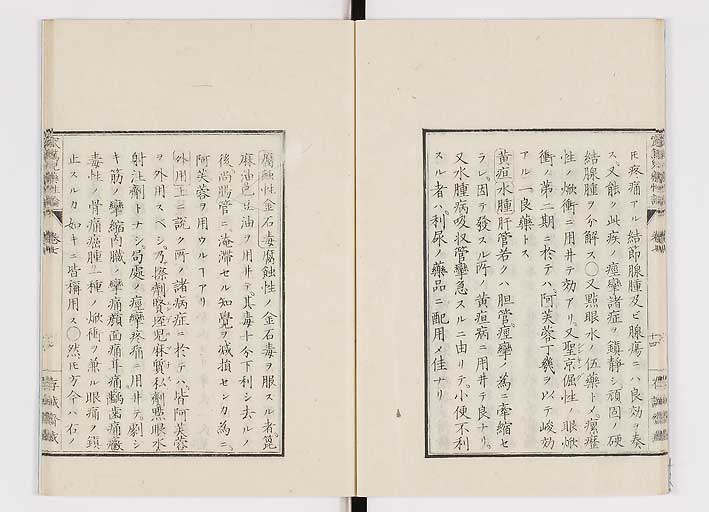 氏疼痛アル結節腺腫及ビ腺瘍ニハ良効ヲ奏
ス又能ク此疾ノ痙攣諸症ヲ鎮静シ頑固ノ硬
結腺腫ヲ分解ス〇又點眼水ノ伍藥トメ瘰癧
性ノ焮衝ニ用井テ効アリ又聖京倔性ノ眼焮
衝ノ第二期ニ於テハ阿芙蓉丁幾ヲ以テ峻効
アル一良藥トス
黄疸水腫肝管若クハ胆管痙攣ノ為ニ牽縮セ
ラレ因テ發スル所ノ黄疸病ニ用井テ良ナリ
又水腫病吸収管攣急スルニ由リテ小便不利
スル者ハ利尿ノ藥品ニ配用メ佳ナリ
十四
腐蝕性金石毒腐蝕性ノ金石毒ヲ服スル者篦
麻油巴豆油ヲ用井テ其毒十分下利シ去ルノ
後尚腸管ニ淹滞セル知覺ヲ減損センカ為ニ
阿芙蓉ヲ用ウルヿアリ
外用上ニ説ク所ノ諸病症ニ於テハ皆阿芙蓉
ヲ外用スベシ乃擦劑賢垤児麻質私劑點眼水
射注劑トナシ局處ノ痙攣疼痛ニ用井テ劇シ
キ筋ノ攣縮内臓ノ攣痛顔面痛耳痛齲歯痛黴
毒性ノ骨痛瘡腫二種ノ焮衝ヲ兼ル眼痛ノ鎮
止スルカ如キニ皆稱用ス〇然氏方今ハ石ノ